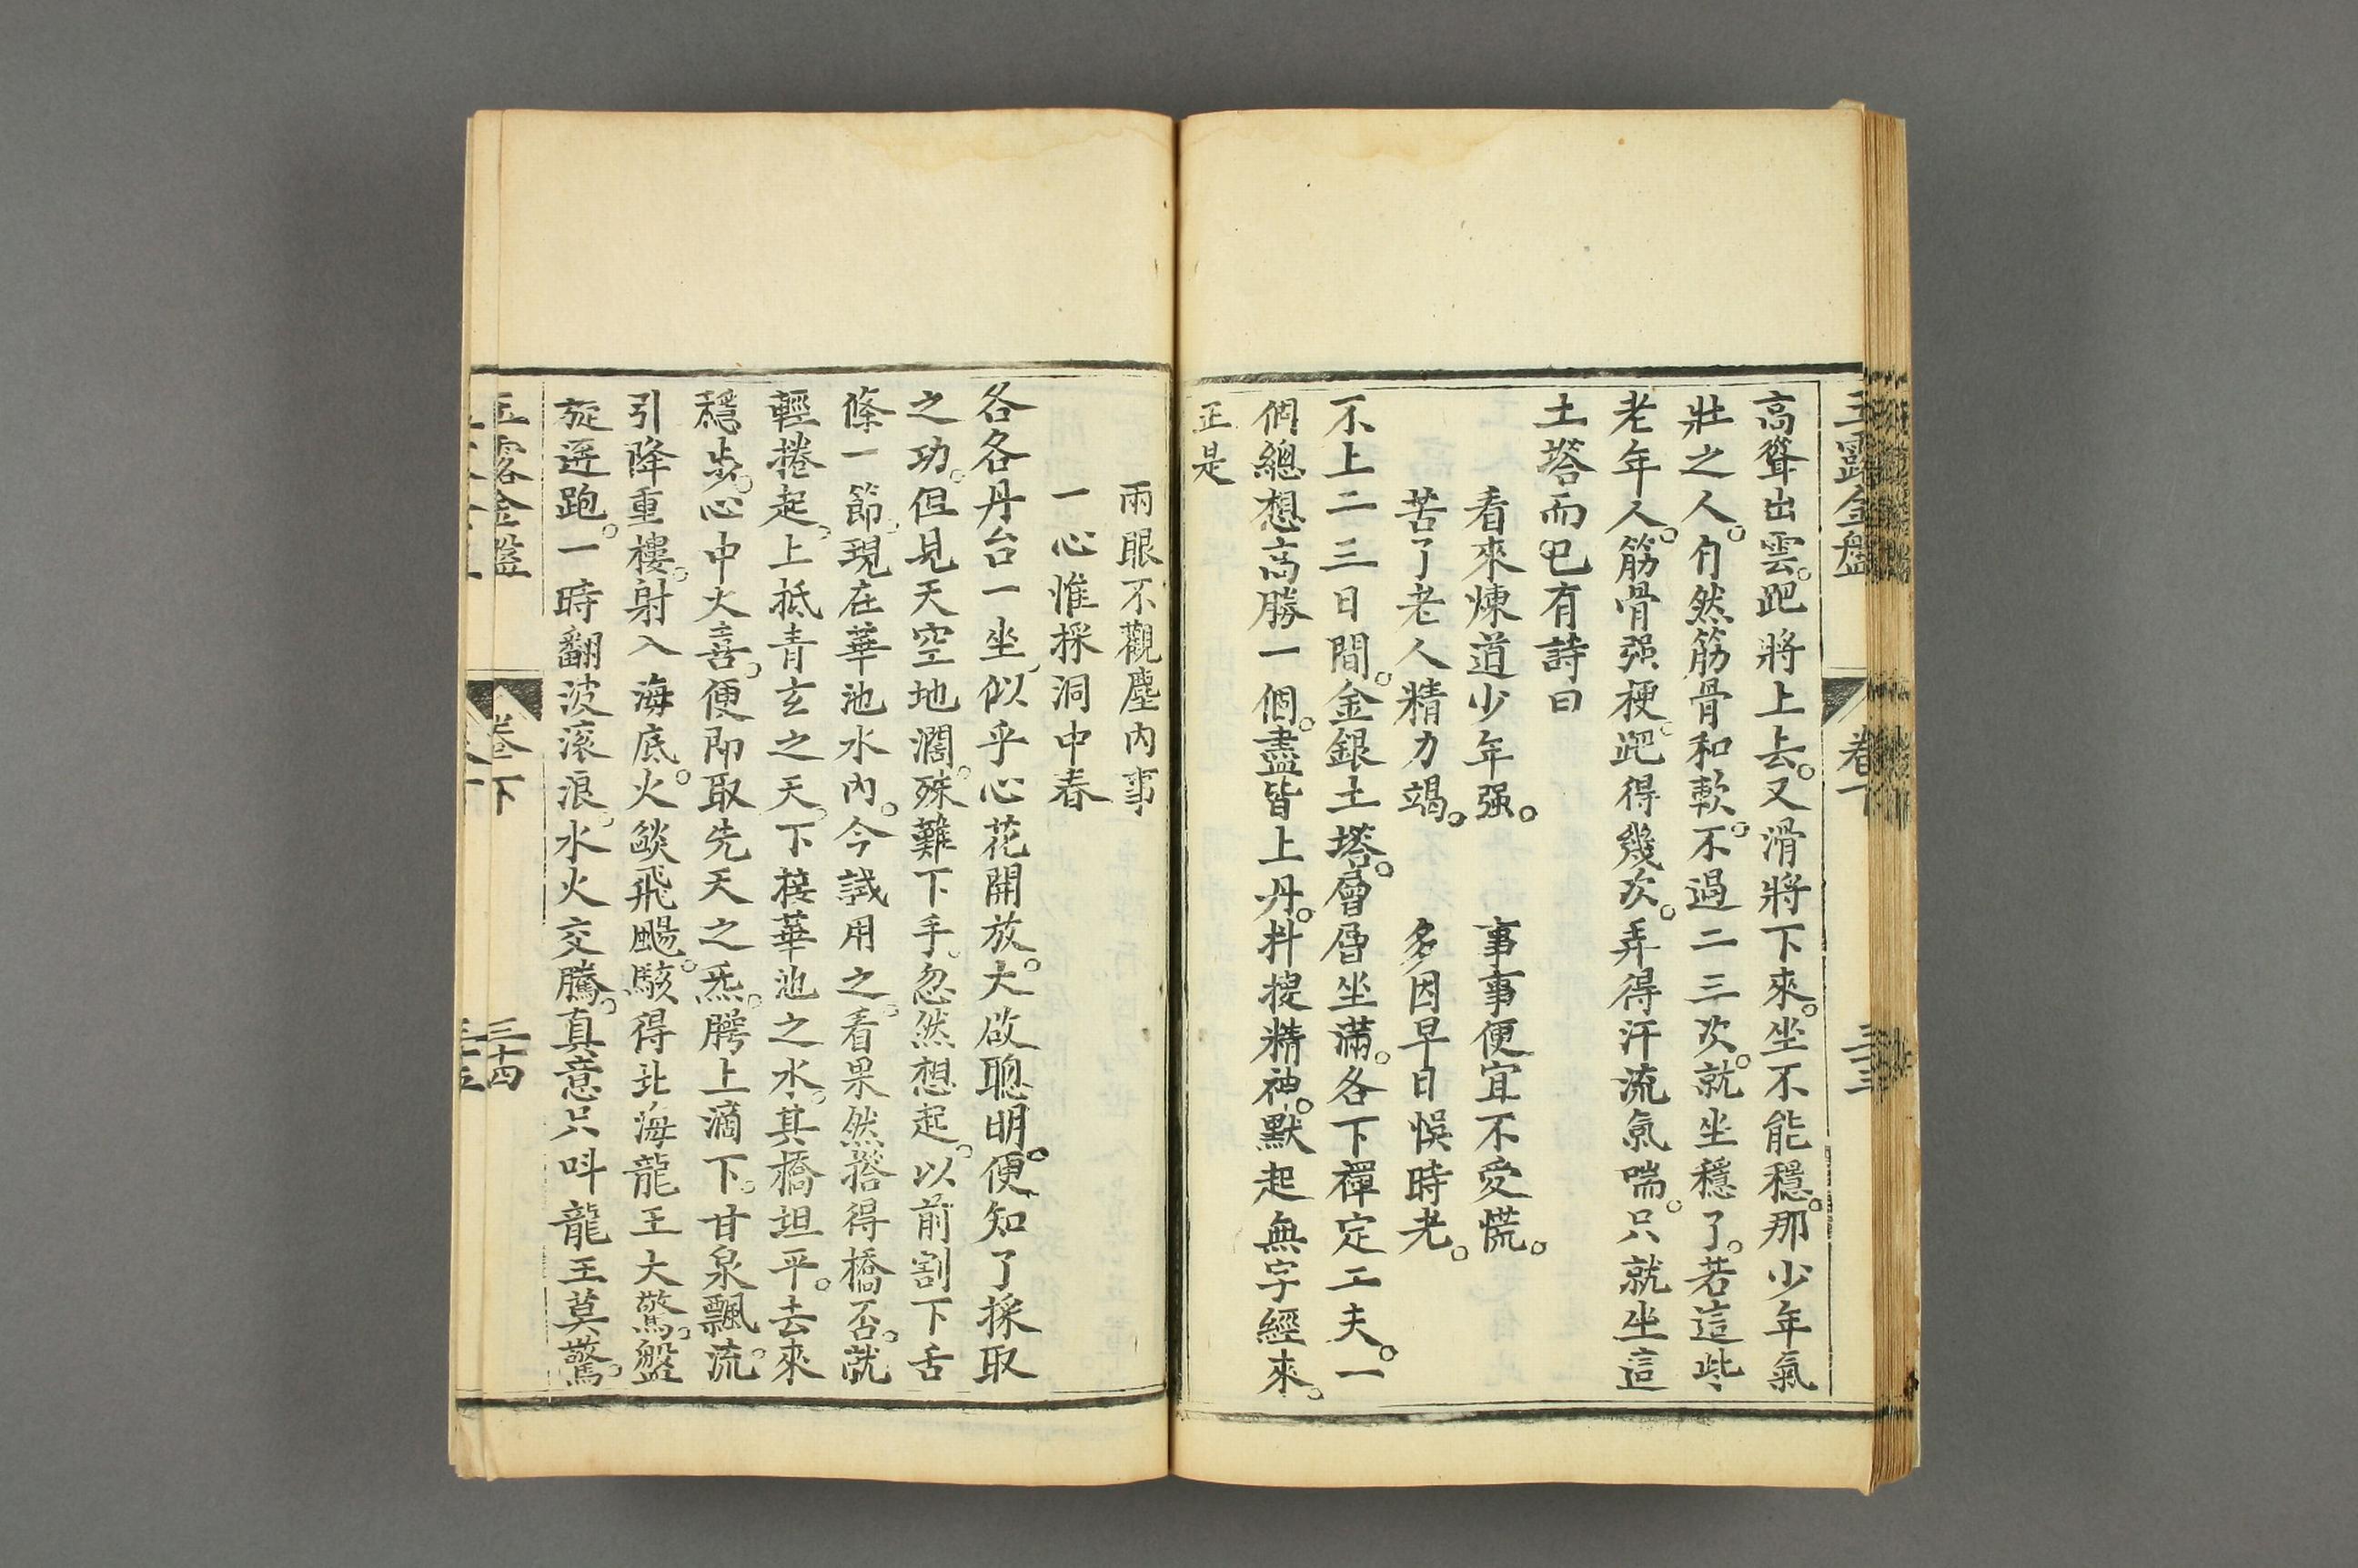 玉露金盤 卷下 三三
高聳出雲。跁將上去。又滑將下來。坐不能穩。那少年氣
壯之人。自然筋骨和軟。不過二三次。就坐穩了。若這些
老年人。筋骨强梗。跁得幾次。弄得汗流氣喘。只就坐這
土塔而已。有詩曰
看來煉道少年强。 事事便宜不受慌。
苦了老人精力竭。 多因早日悞時老。
不上二三日間。金銀土塔。層層坐滿。各下禪定工夫。一
個總想高勝一個。盡皆上丹。抖搜精神。默起無字經來。
正是
兩眼不觀塵內事
一心惟採洞中春
各各丹台一坐、似乎心花開放。大啟聰明。便知了採取
之功。但見天空地濶。殊難下手。忽然想起。以前割下舌
條一節。現在華池水內。今試用之。看果然搭得橋否。就
輕捲起。上抵青玄之天。下接華池之水。其橋坦平。去來
穩步。心中火喜。便即取先天之炁。腭上滴下。甘泉飄流。
引降重樓。射入海底。火燄飛颺。駭得北海龍王大驚。盤
旋逩跑。一時翻波滾浪。水火交騰。真意只呌龍王莫驚。
玉露金盤 卷下 三十四